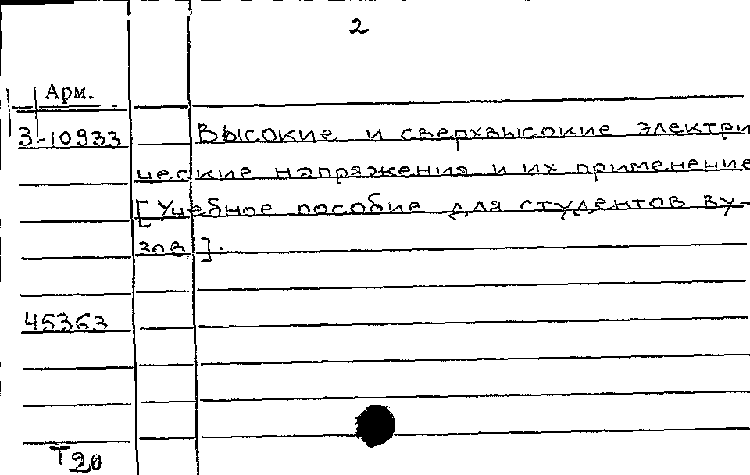 2
Арм.
З-10933 Высокие и сверхвысокие электри
ческие напряжения и их применение
[Учебное пособие для студентов ву-
зов].
45363
Т20